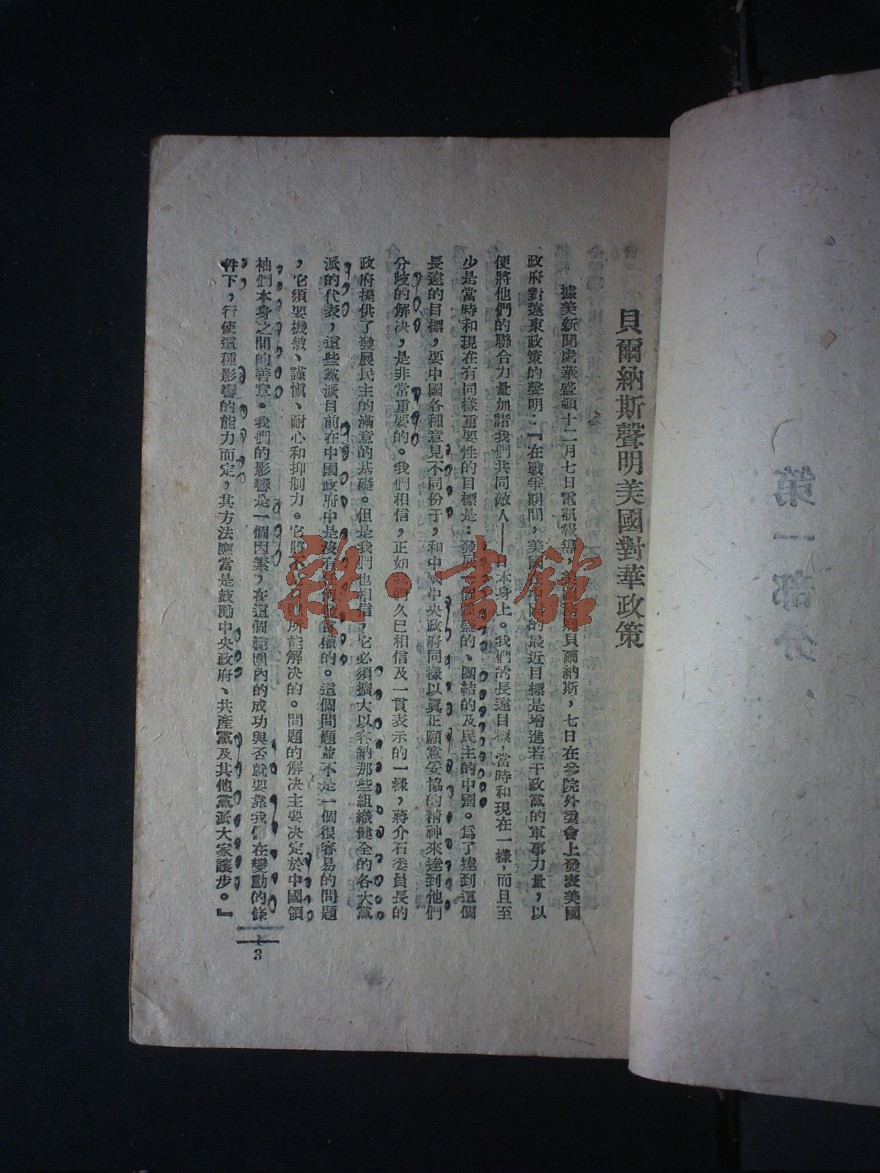 貝爾納斯聲明美國對華政策
據美新聞處華盛頓十二月七日電訊報導 貝爾納斯,七日在參院外委會上發表美國
政府對遠東政策的聲明:『在戰爭期間,美國 的最近目標是增進若干政黨的軍事力量,以
便將他們的聯合力量加諸我們共同敵人——日本身上。我們的長遠目標,當時和現在一樣,而且至
少是當時和現在有同樣重要性的目標是:發展 的、團結的及民主的中國。爲了達到這個
長遠的目標,要中國各種意見不同份子,和中國中央政府同樣以眞正願意妥協的精神來達到他們
分歧的解決,是非常重要的。我們相信,正如我們久已相信及一貫表示的一樣,蔣介石委員長的
政府提供了發展民主的滿意的基礎。但是我們也相信,它必須擴大以容納那些組織健全的各大黨
派的代表,這些黨派目前在中國政府中是沒有 的。這個問題並不是一個很容易的問題
,它須要機敏、謹愼、耐心和抑制力。它將不 所能解決的。問題的解決主要決定於中國領
袖們本身之間的善意。我們的影響是一個因素,在這個範圍內的成功與否就要靠我們在變動的條
件下,行使這種影響的能力而定,其方法應當是鼓勵中央政府、共產黨及其他黨派大家讓步。』
3
第一部分
雜·書館